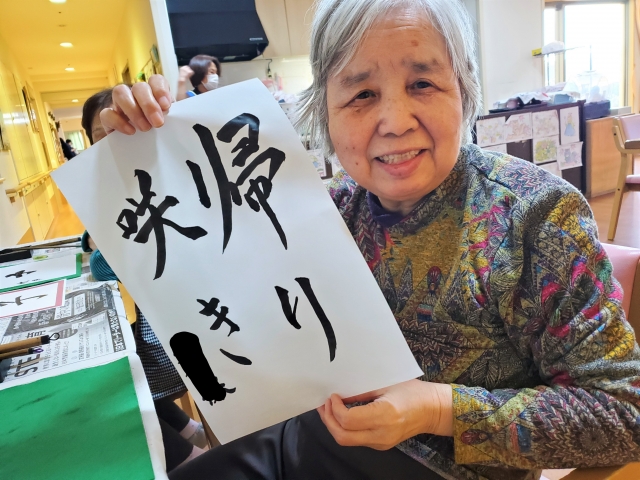 帰り
咲き